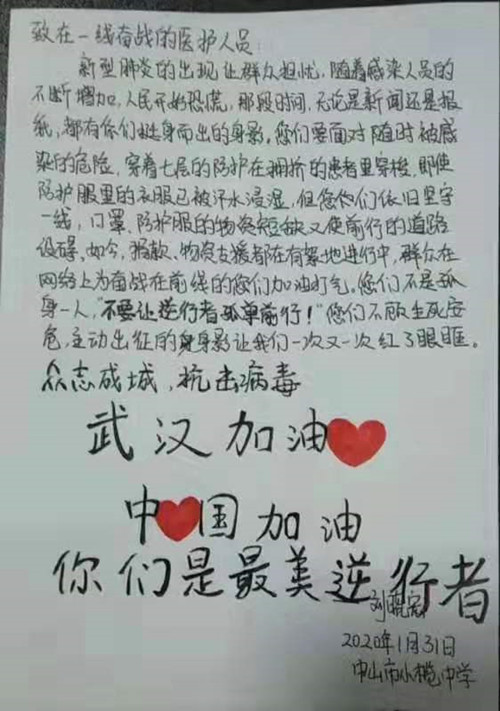 致在一线奋战的医护人员:
新型肺炎的出现让群众担忧,随着感染人员的
不断增加,人民开始恐慌,那段时间,无论是新闻还是报
纸,都有你们挺身而出的身影。您们要面对随时被感
染的危险,穿着七层的防护在拥挤的患者里穿梭,即使
防护服里的衣服已被汗水浸湿,但您你们依旧坚守
一线,口罩、防护服的物资短缺又使前行的道路
设碍。如今,捐款、物资支援都在有案地进行中,群众在
网络上为奋战在前线的你们加油打气。您们不是孤
身一人,“不要让逆行者孤单前行!”您们不顾生死安
危,主动出征的身影让我们一次又一次红了眼眶。
众志成城,抗击病毒
武汉加油
中国加油
你们是最美逆行者
刘
2020年1月31日
中山市小榄中学